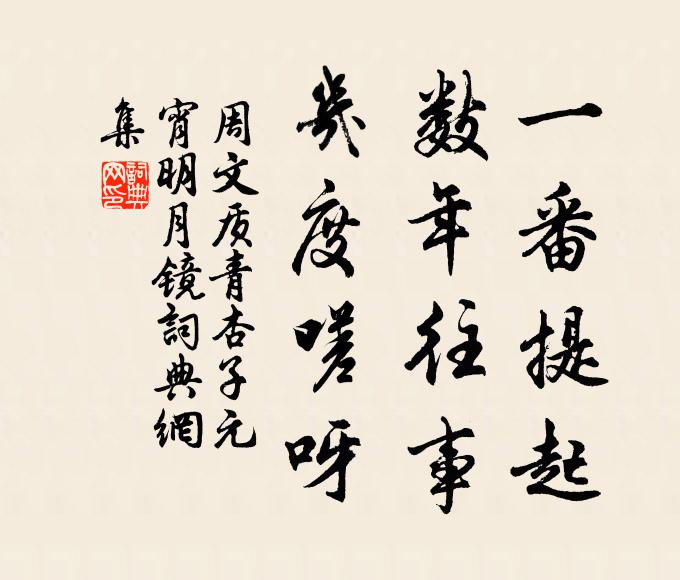 一番提起
数年往事
幾度嗟呀
周文质青杏子元
宵明月镜詞典網
集
詞典
网印